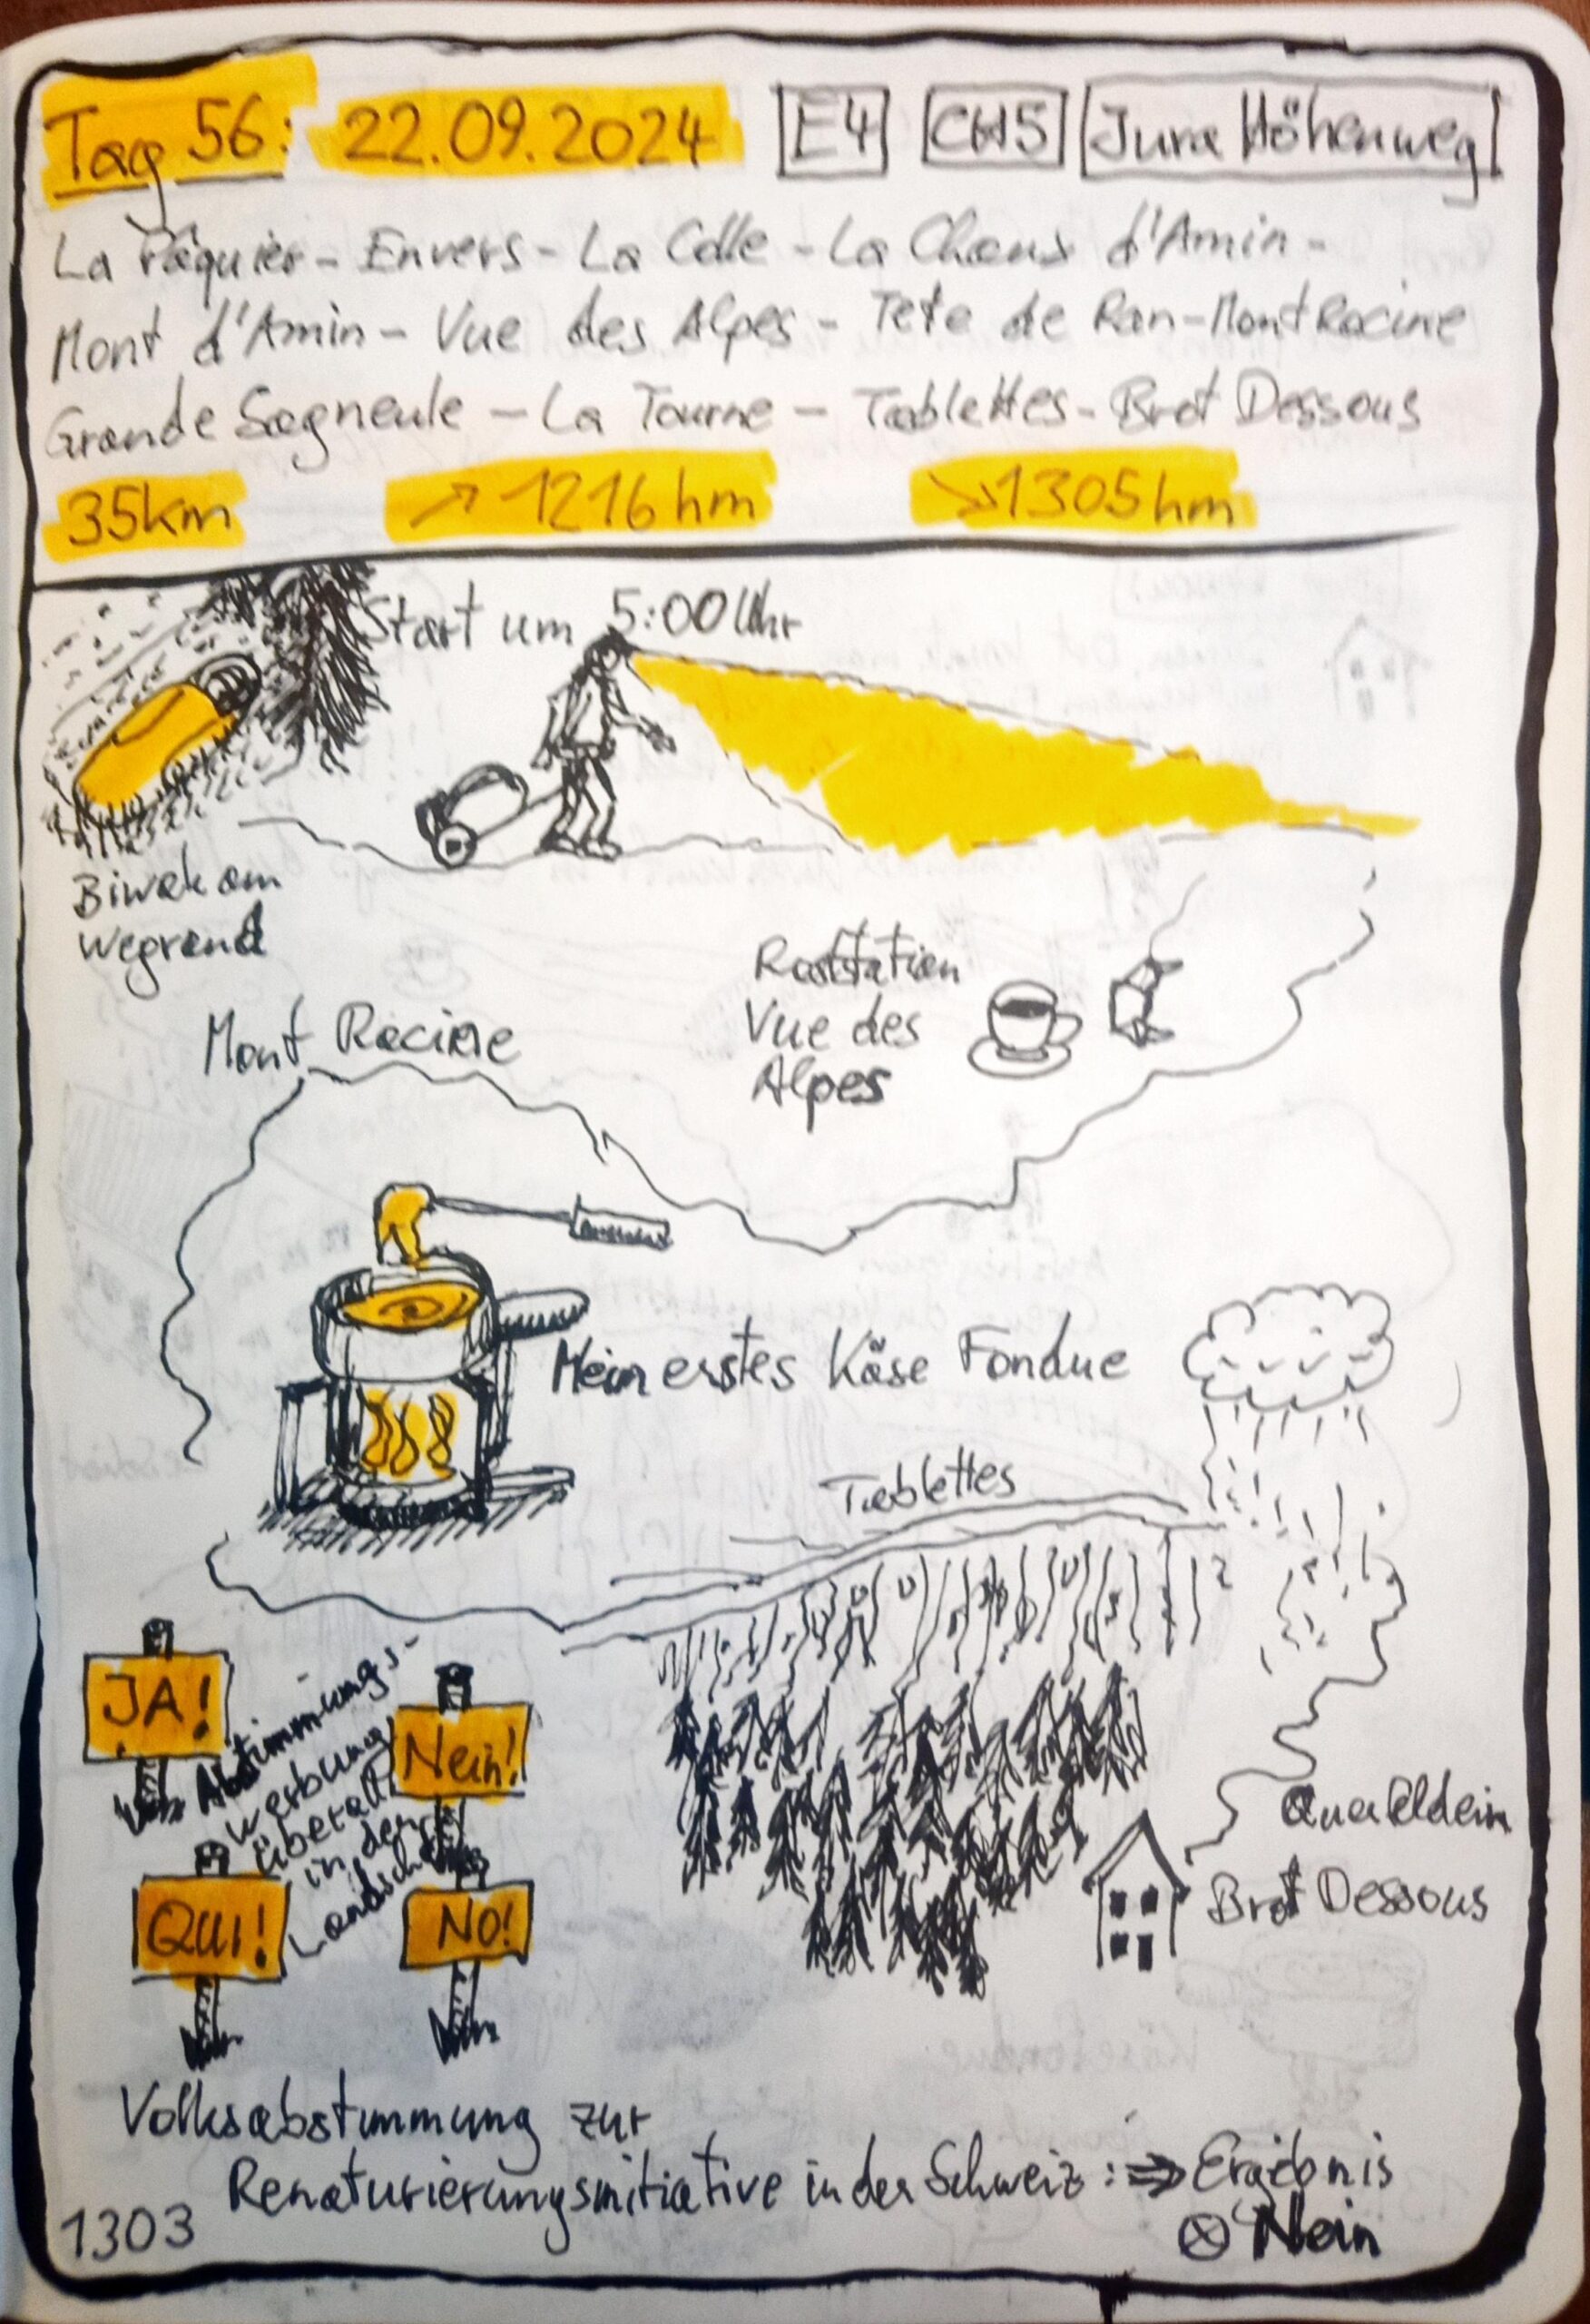 Tag 56: 22.09.2024 E4 CH5 Jura Höhenweg
La Pâquier - Envers - La Côlle - La Chaux d'Amin -
Mont d'Amin - Vue des Alpes - Tete de Ran - Mont Racine
Grande Sagneule - La Tourne - Tablettes - Brot Dessous
35km ↗ 1216hm ↘ 1305hm
Start um 5:00 Uhr
Biwak am
Wegrand
Raststation
Vue des
Alpes
Mont Racine
Mein erstes Käse Fondue
Tablettes
JA!
Nein!
Abstimmungs-
werbung
überall
in der
Landschaft
OUI!
NO!
Querfeldein
Brot Dessous
Volksabstimmung zur
Renaturierungsinitiative in der Schweiz: => Ergebnis
⊗ Nein
1303